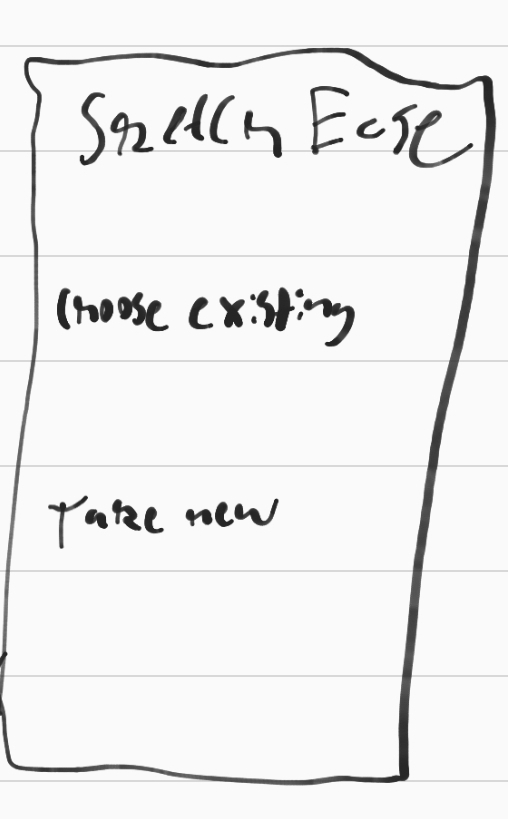 Ease
Choose existing
Take new